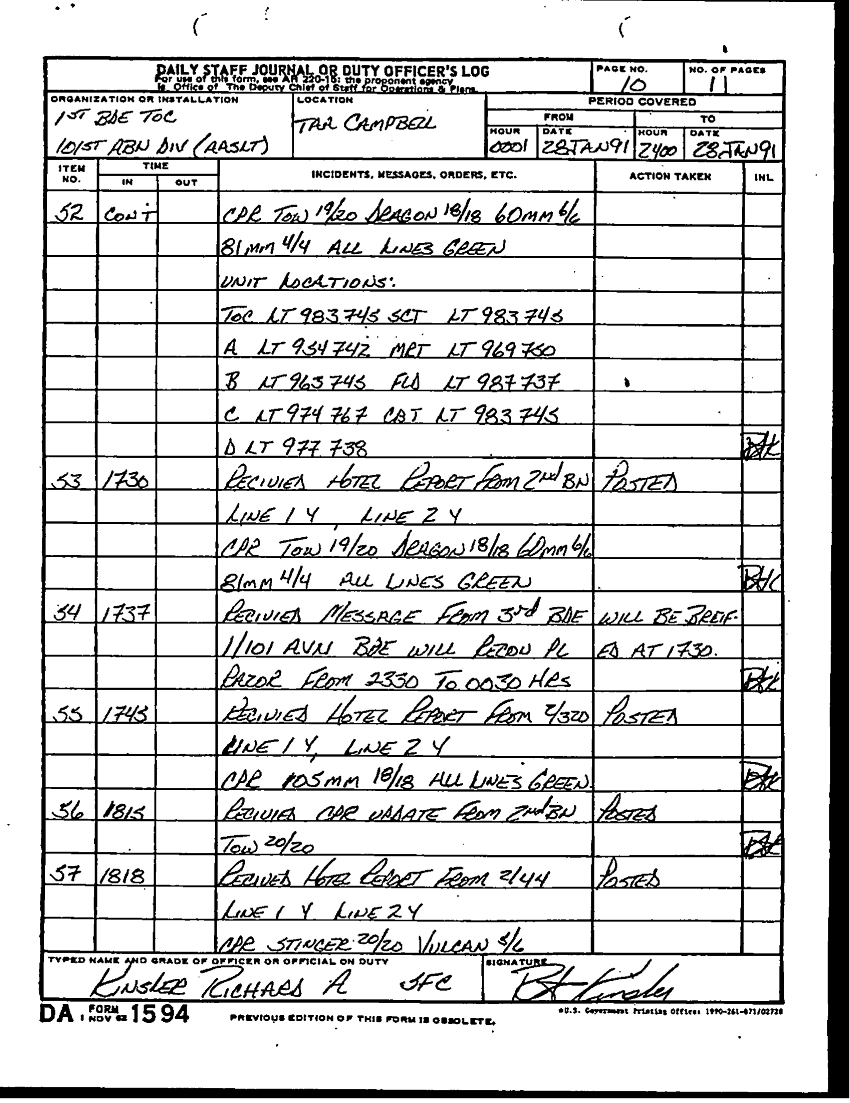 DAILY STAFF JOURNAL OR DUTY OFFICER'S LOG
For use of this form, see AR 220-15; the proponent agency
is Office of The Deputy Chief of Staff for Operations & Plans.
PAGE NO.
10
NO. OF PAGES
11
ORGANIZATION OR INSTALLATION
1ST BDE TOC
101ST ABN DIV (AASLT)
LOCATION
TAA CAMPBELL
PERIOD COVERED
FROM TO
HOUR DATE HOUR DATE
0001 28JAN91 2400 28JAN91
ITEM NO. TIME IN OUT INCIDENTS, MESSAGES, ORDERS, ETC. ACTION TAKEN INL
52 CONT CPR TOW 19/20 DRAGON 18/18 60MM 6/6
81MM 4/4 ALL LINES GREEN
UNIT LOCATIONS:
TOC LT 983745 SCT LT 983745
A LT 954742 MRT LT 969750
B LT 963745 FLD LT 987737
C LT 974767 CBT LT 983745
D LT 977738
53 1730 RECIVIED HOTEL REPORT FROM 2nd BN POSTED
LINE 1 Y, LINE 2 Y
CPR TOW 19/20 DRAGON 18/18 60MM 6/6
81MM 4/4 ALL LINES GREEN
54 1737 RECIVIED MESSAGE FROM 3rd BDE WILL BE BREIF-
1/101 AVN BDE WILL RECON PL ED AT 1730.
RAZOR FROM 2330 TO 0030 HRS
55 1745 RECIVIED HOTEL REPORT FROM 2/320 POSTED
LINE 1 Y, LINE 2 Y
CPR 105MM 18/18 ALL LINES GREEN.
56 1815 RECIVIED CPR UPDATE FROM 2nd BN POSTED
TOW 20/20
57 1818 RECIVED HOTEL REPORT FROM 2/44 POSTED
LINE 1 Y LINE 2 Y
CPR STINGER 20/20 VULCAN 5/6
TYPED NAME AND GRADE OF OFFICER OR OFFICIAL ON DUTY
KINSLER RICHARD A SFC
SIGNATURE
DA FORM 1 NOV 62 1594
PREVIOUS EDITION OF THIS FORM IS OBSOLETE.
*U.S. Government Printing Office: 1990-261-871/02728